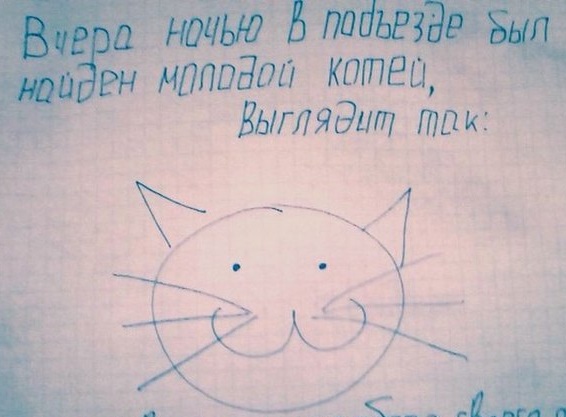 Вчера ночью в подъезде был
найден молодой котей,
выглядит так: